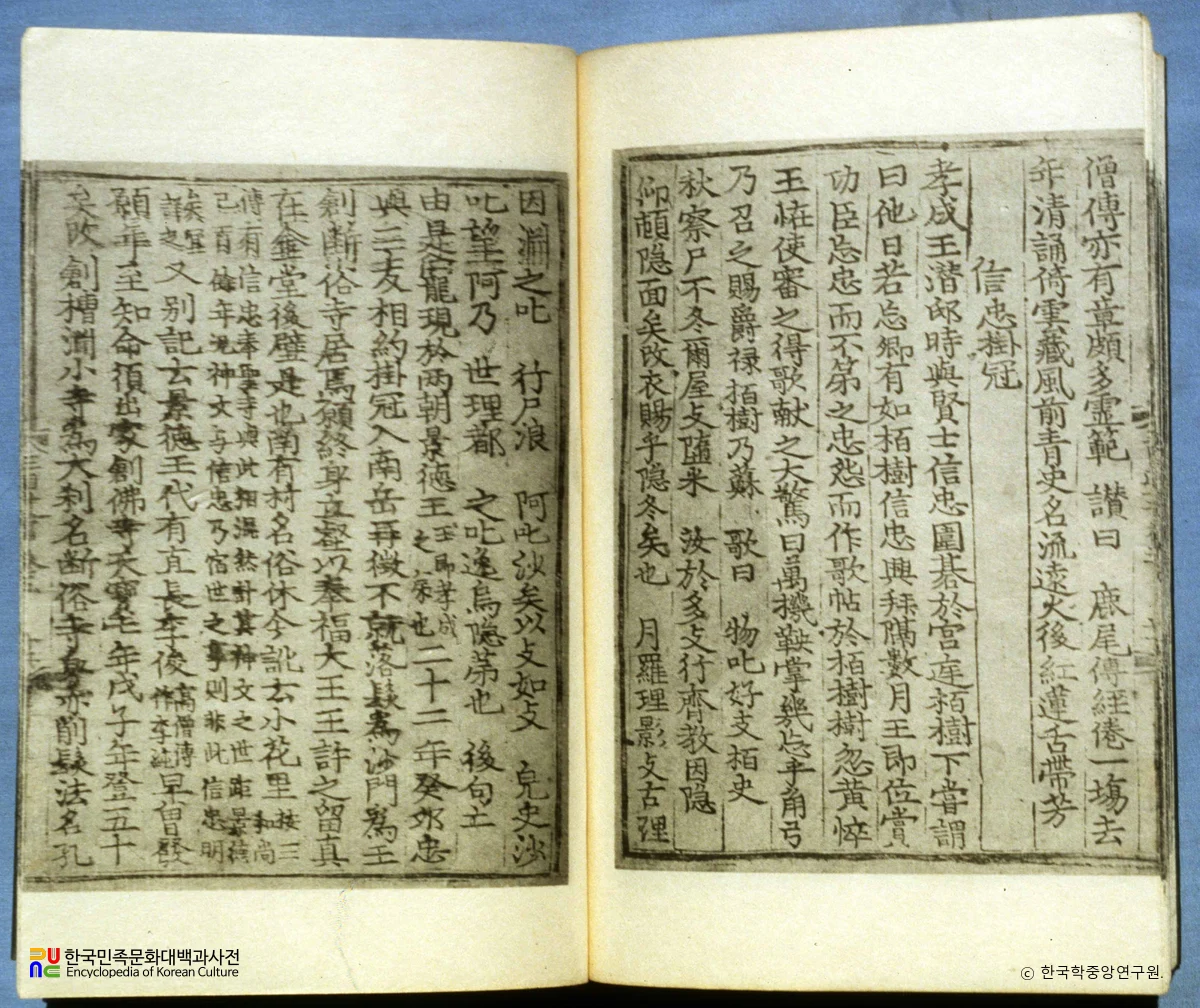 僧傳亦有章頗多霊範 讃曰 鹿尾傳經倦一塲去
年清誦倚雲藏風前青史名流遠火後紅蓮舌帶芳
信忠掛冠
孝成王潜邸時與賢士信忠圍碁於宮庭栢樹下甞謂
曰他日若忘卿有如栢樹信忠興拜隔數月王即位賞
功臣忘忠而不第之忠怨而作歌帖於栢樹樹忽黄悴
王怪使審之得歌献之大驚曰萬機鞅掌幾忘乎角弓
乃召之賜爵禄栢樹乃蘇 歌曰 物叱好支栢史
秋察尸不冬爾屋攴墮米 汝於多攴行齊教因隐
仰頓隐面矣改衣賜乎隐冬矣也 月羅理影攴古理
因淵之叱 行尸浪 阿叱沙矣以攴如攴 皃史沙
叱望阿乃 世理都 之叱逸烏隐苐也 後句亡
由是寵現於兩朝景德王王即孝成之弟也二十二年癸夘忠
與二友相約掛冠入南岳再徵不就落髮為沙門為王
創断俗寺居焉願終身立壑以奉福大王王許之留真
在金堂後壁是也南有村名俗休今訛云小花里按三和尚
傳有信忠奉聖寺與此相混然計其神文之世距景德
已百餘年况神文与信忠乃宿世之事則非此信忠明
矣宜詳之又别記云景德王代有直長李俊高僧傳作李純早曾發
願年至知命須出家創佛寺天寶七年戊子年登五十
矣改創槽淵小寺為大刹名断俗寺身亦削髮法名孔
한국민족문화대백과사전
Encyclopedia of Korean Culture
© 한국학중앙연구원.